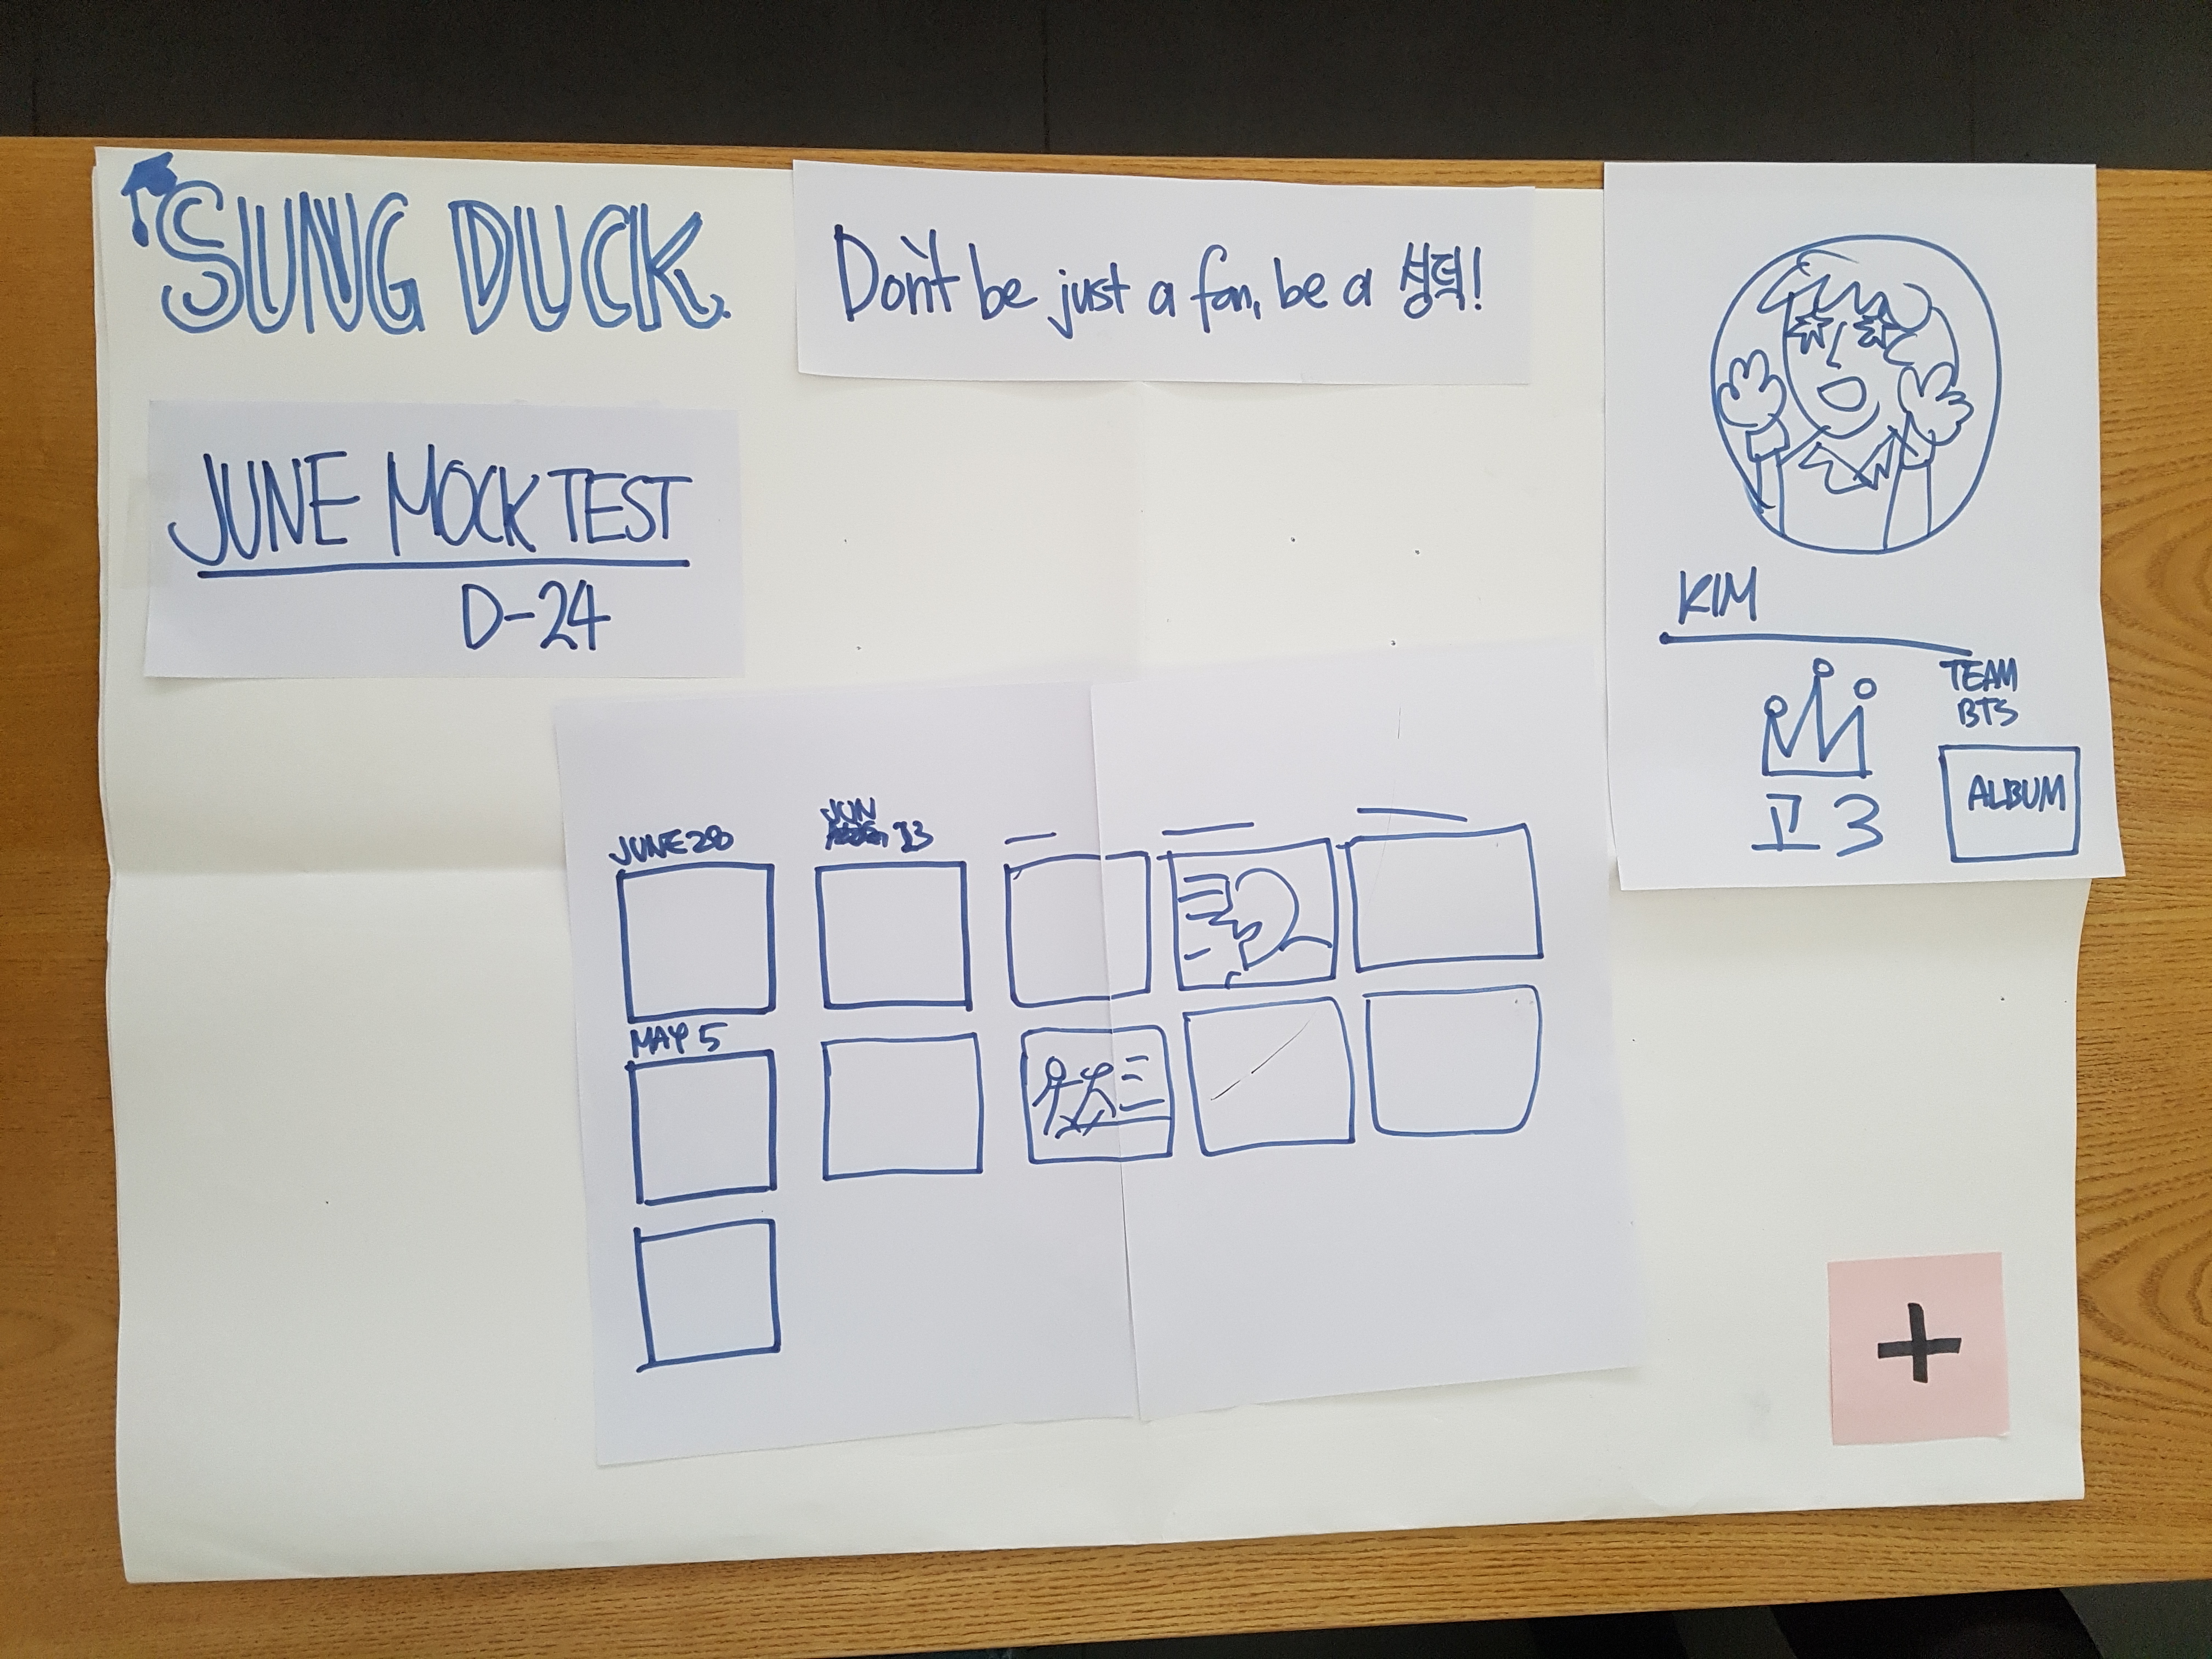 SUNG DUCK.
Don't be just a fan, be a 성덕!
JUNE MOCK TEST
D-24
KIM
TEAM
BTS
고3
ALBUM
JUNE 28
JUN 13
MAY 5
+